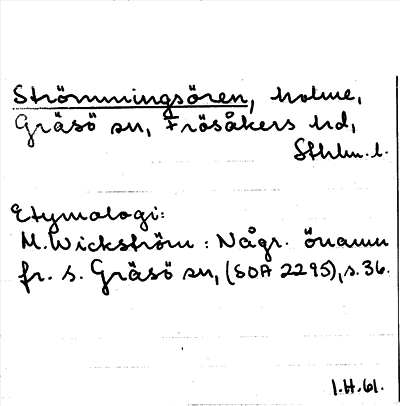 Strömmingsören, holme,
Gräsö sn, Frösåkers hd,
Sthlm. l.
Etymologi:
M. Wickström: Någr. önamn
fr. s. Gräsö sn, (SOA 2295), s. 36.
1.H.61.